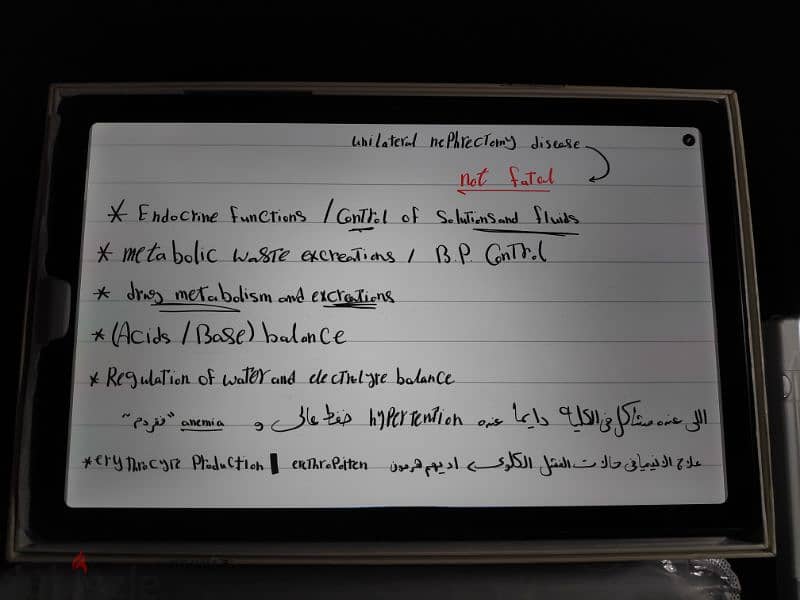 unilateral nephrectomy disease
not fatal
* Endocrine functions / Control of Solutions and fluids
* metabolic waste excreations / B.P. Control
* drug metabolism and excretions
* (Acids / Base) balance
* Regulation of water and electrelyre balance
اللى عنده مشاكل فى الكلية دايما عنده hypertention ضغط عالى و anemia "فقردم"
*erythrocyte Production | erethropotten علاج الانيميا فى حالات الفشل الكلوى > اديهم هرمون